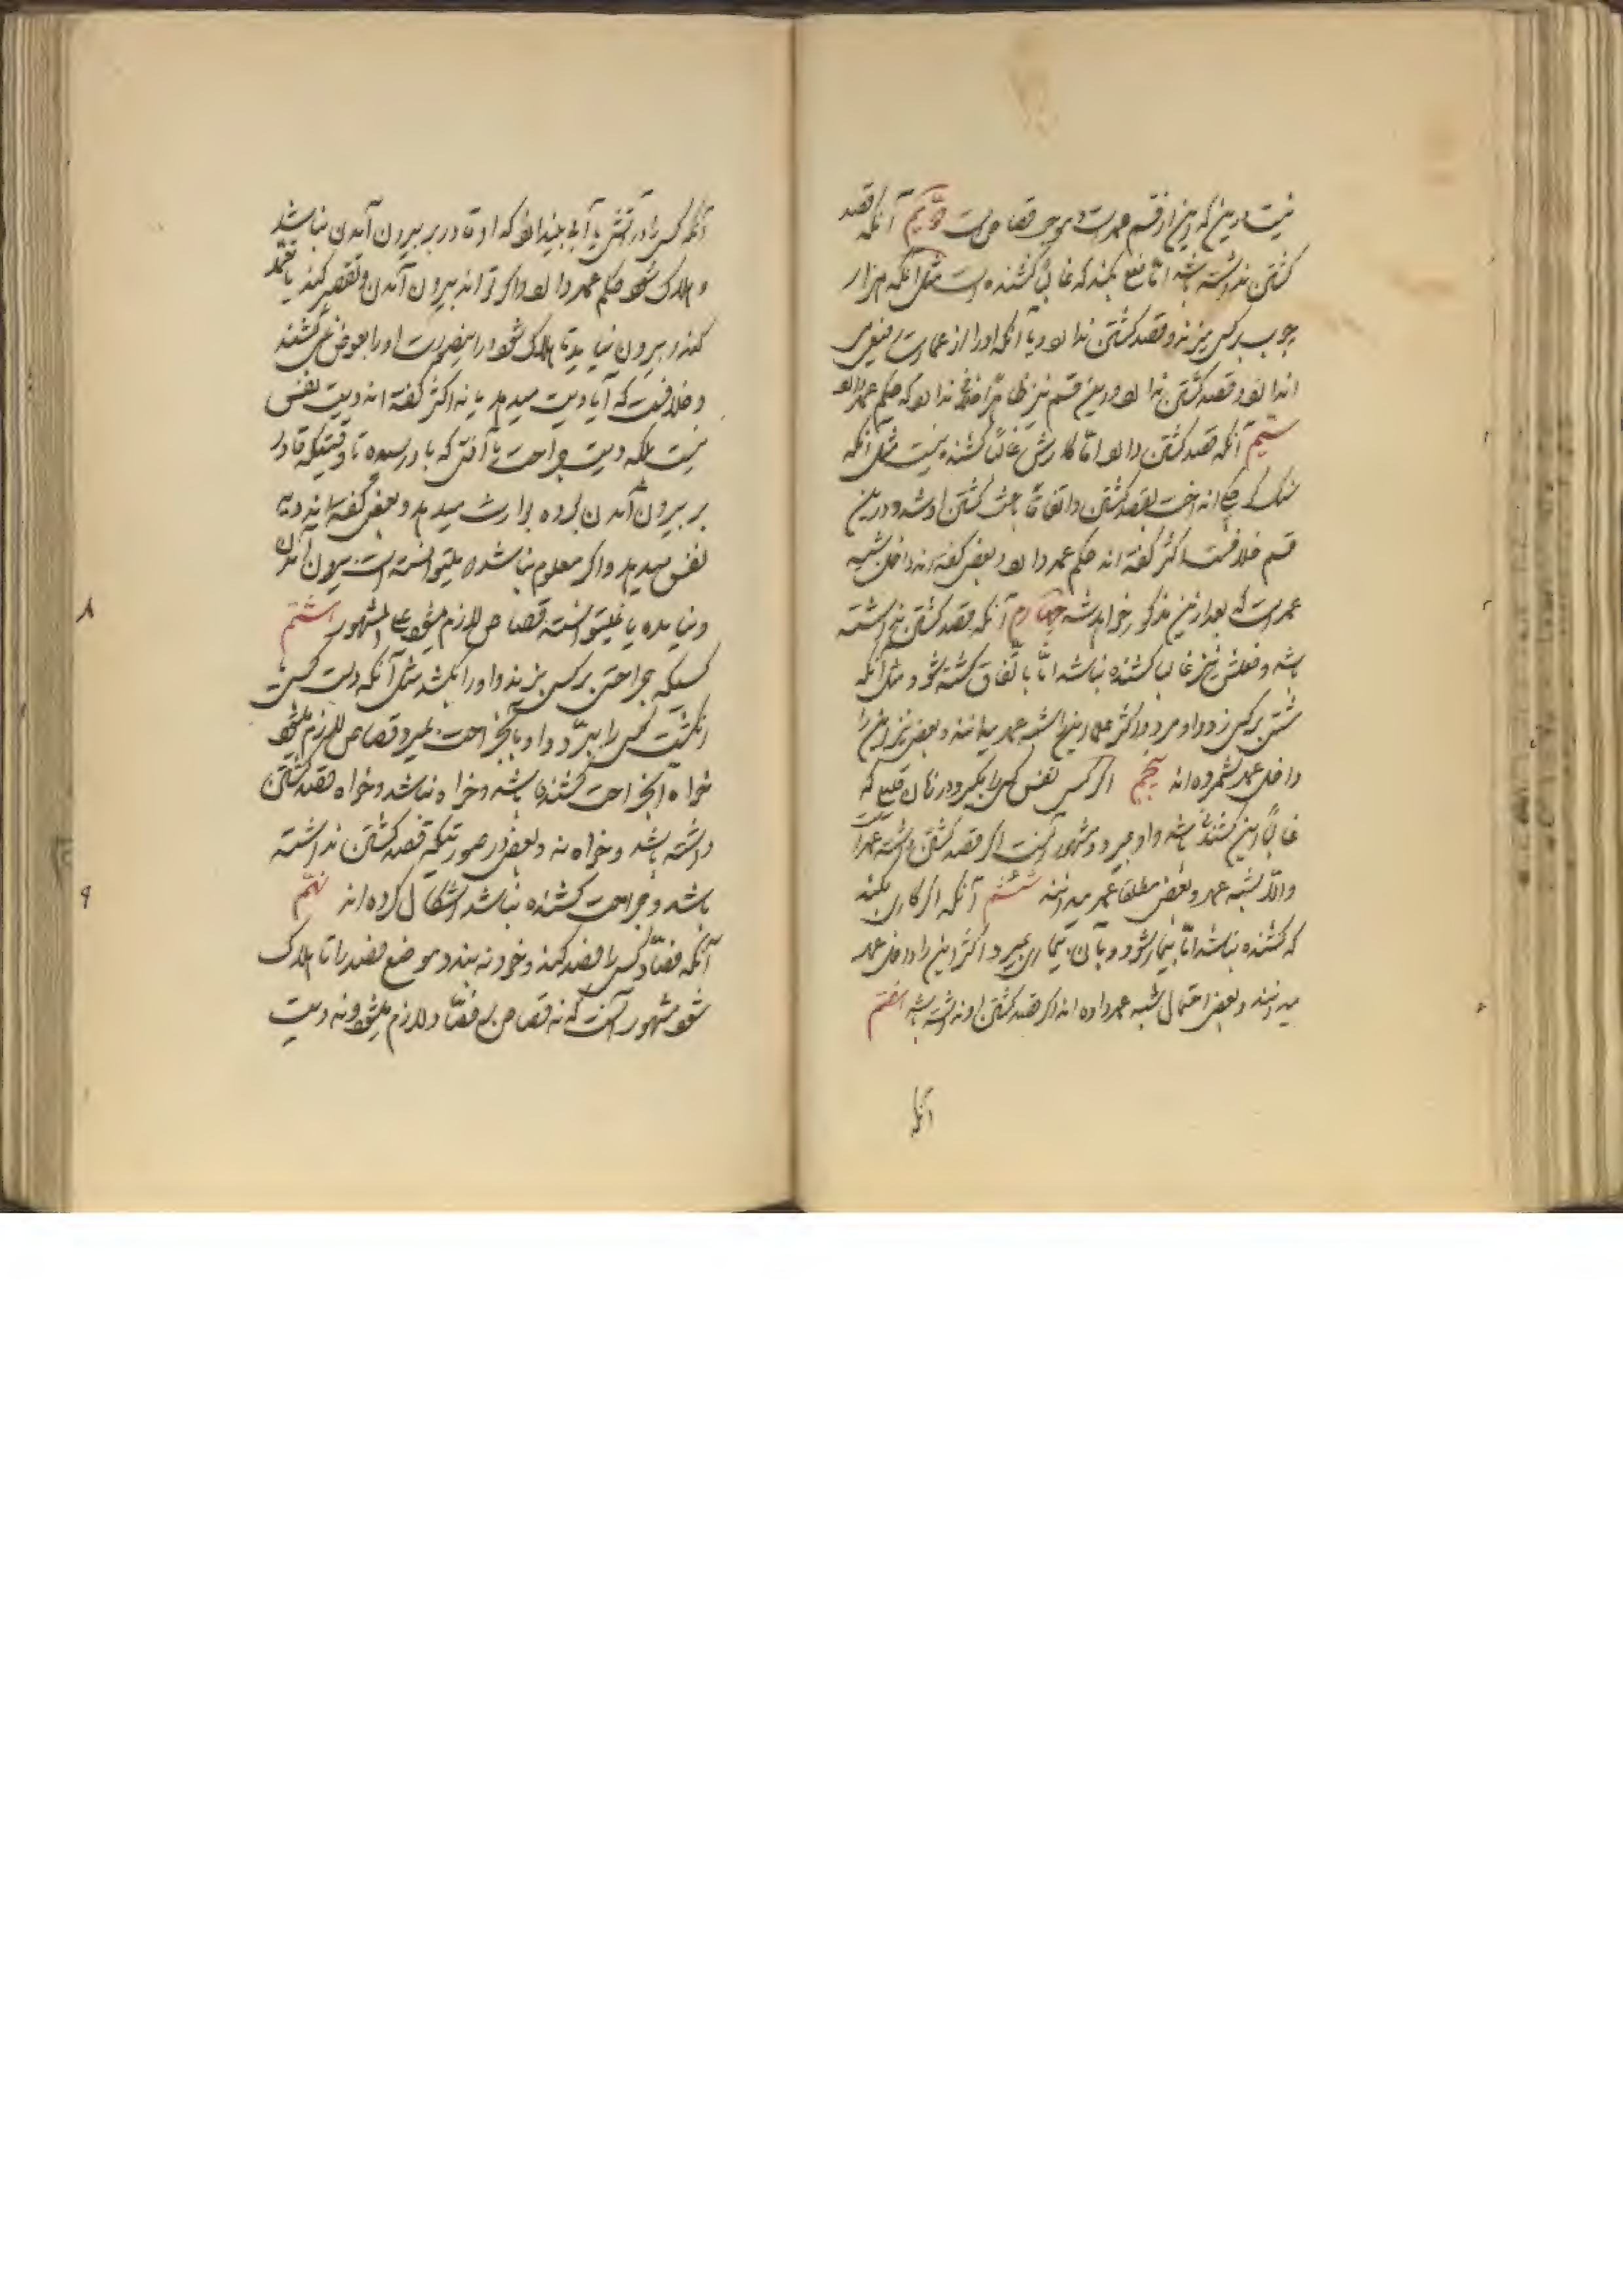 نیست درین که این از قسم عمد است و موجب قصاص است دویّم آنکه قصد
کشتن نداشته باشد امّا فعلی بکند که غالباً کشنده است مثل آنکه هزار
چوب بر کسی بزند و قصد کشتن ندارد و یا آنکه او را از عمارت رفیعی
اندازد و قصد کشتن ندارد و درین قسم نیز ظاهراً خلافی ندارد که حکم عمد دارد
سیّم آنکه قصد کشتن دارد امّا کارش غالباً کشنده نیست مثل آنکه
سنگ کوچکی انداخت بقصد کشتن و اتفاقاً باعث کشتن او شد و درین
قسم خلافست اکثر گفته اند حکم عمد دارد و بعضی گفته اند داخل شبیه
عمد است که بعد ازین مذکور خواهد شد چهارم آنکه قصد کشتن نداشته
باشد و فعلش نیز غالباً کشنده نباشد امّا باتّفاق کشته شود مثل آنکه
مشتی بر کسی زد و او مرد و اکثر علما این را شبیه عمد میدانند و بعضی نیز این را
داخل عمد شمرده اند پنجم اگر کسی نفس کسی را بگیرد در زمان قلیلی که
غالباً این کشنده باشد و او بمیرد و مشهور آنست اگر قصد کشتن داشته عمد است
والّا شبیه عمد و بعضی مطلقا عمد میدانند ششم آنکه اگر کاری بکند
که کشنده نباشد امّا بیمار شود و بآن بیماری بمیرد و اکثر این را داخل عمد
میدانند و بعضی احتمال شبیه عمد داده اند اگر قصد کشتن او نداشته باشد هفتم
آنکه
آنکه کسی را در آتش یا آبی بیندازد که او قادر بر بیرون آمدن نباشد
و هلاک شود حکم عمد دارد و اگر تواند بیرون آمدن و تقصیر کند یا تعمّد
کند و بیرون نیاید تا هلاک شود در اینصورت او را بعوض نمی کشند
و خلافست که آیا دیت میدهد یا نه اکثر گفته اند دیت نفس
نیست بلکه دیت جراحت یا آفتی که باو رسیده تا وقتیکه قادر
بر بیرون آمدن بوده بوارث میدهد و بعضی گفته اند دیه
نفس میدهد و اگر معلوم نباشد که میتوانسته است بیرون آمدن
و نیامده یا نمیتوانسته قصاص لازم میشود علی المشهور هشتم
کسیکه جراحتی بر کسی بزند و او را بکشد مثل آنکه دست کسی یا
انگشت کسی را ببرّد و او بآنجراحت بمیرد قصاص لازم میشود
خواه آنجراحت کشنده باشد و خواه نباشد و خواه قصد کشتن
داشته باشد و خواه نه و بعضی در صورتیکه قصد کشتن نداشته
باشد و جراحت کشنده نباشد اشکال کرده اند نهم
آنکه فصّاد کسی را فصد کند و خود نه بندد موضع فصد را تا هلاک
شود مشهور آنست که نه قصاص بر فصّاد لازم میشود و نه دیت
۸
۹